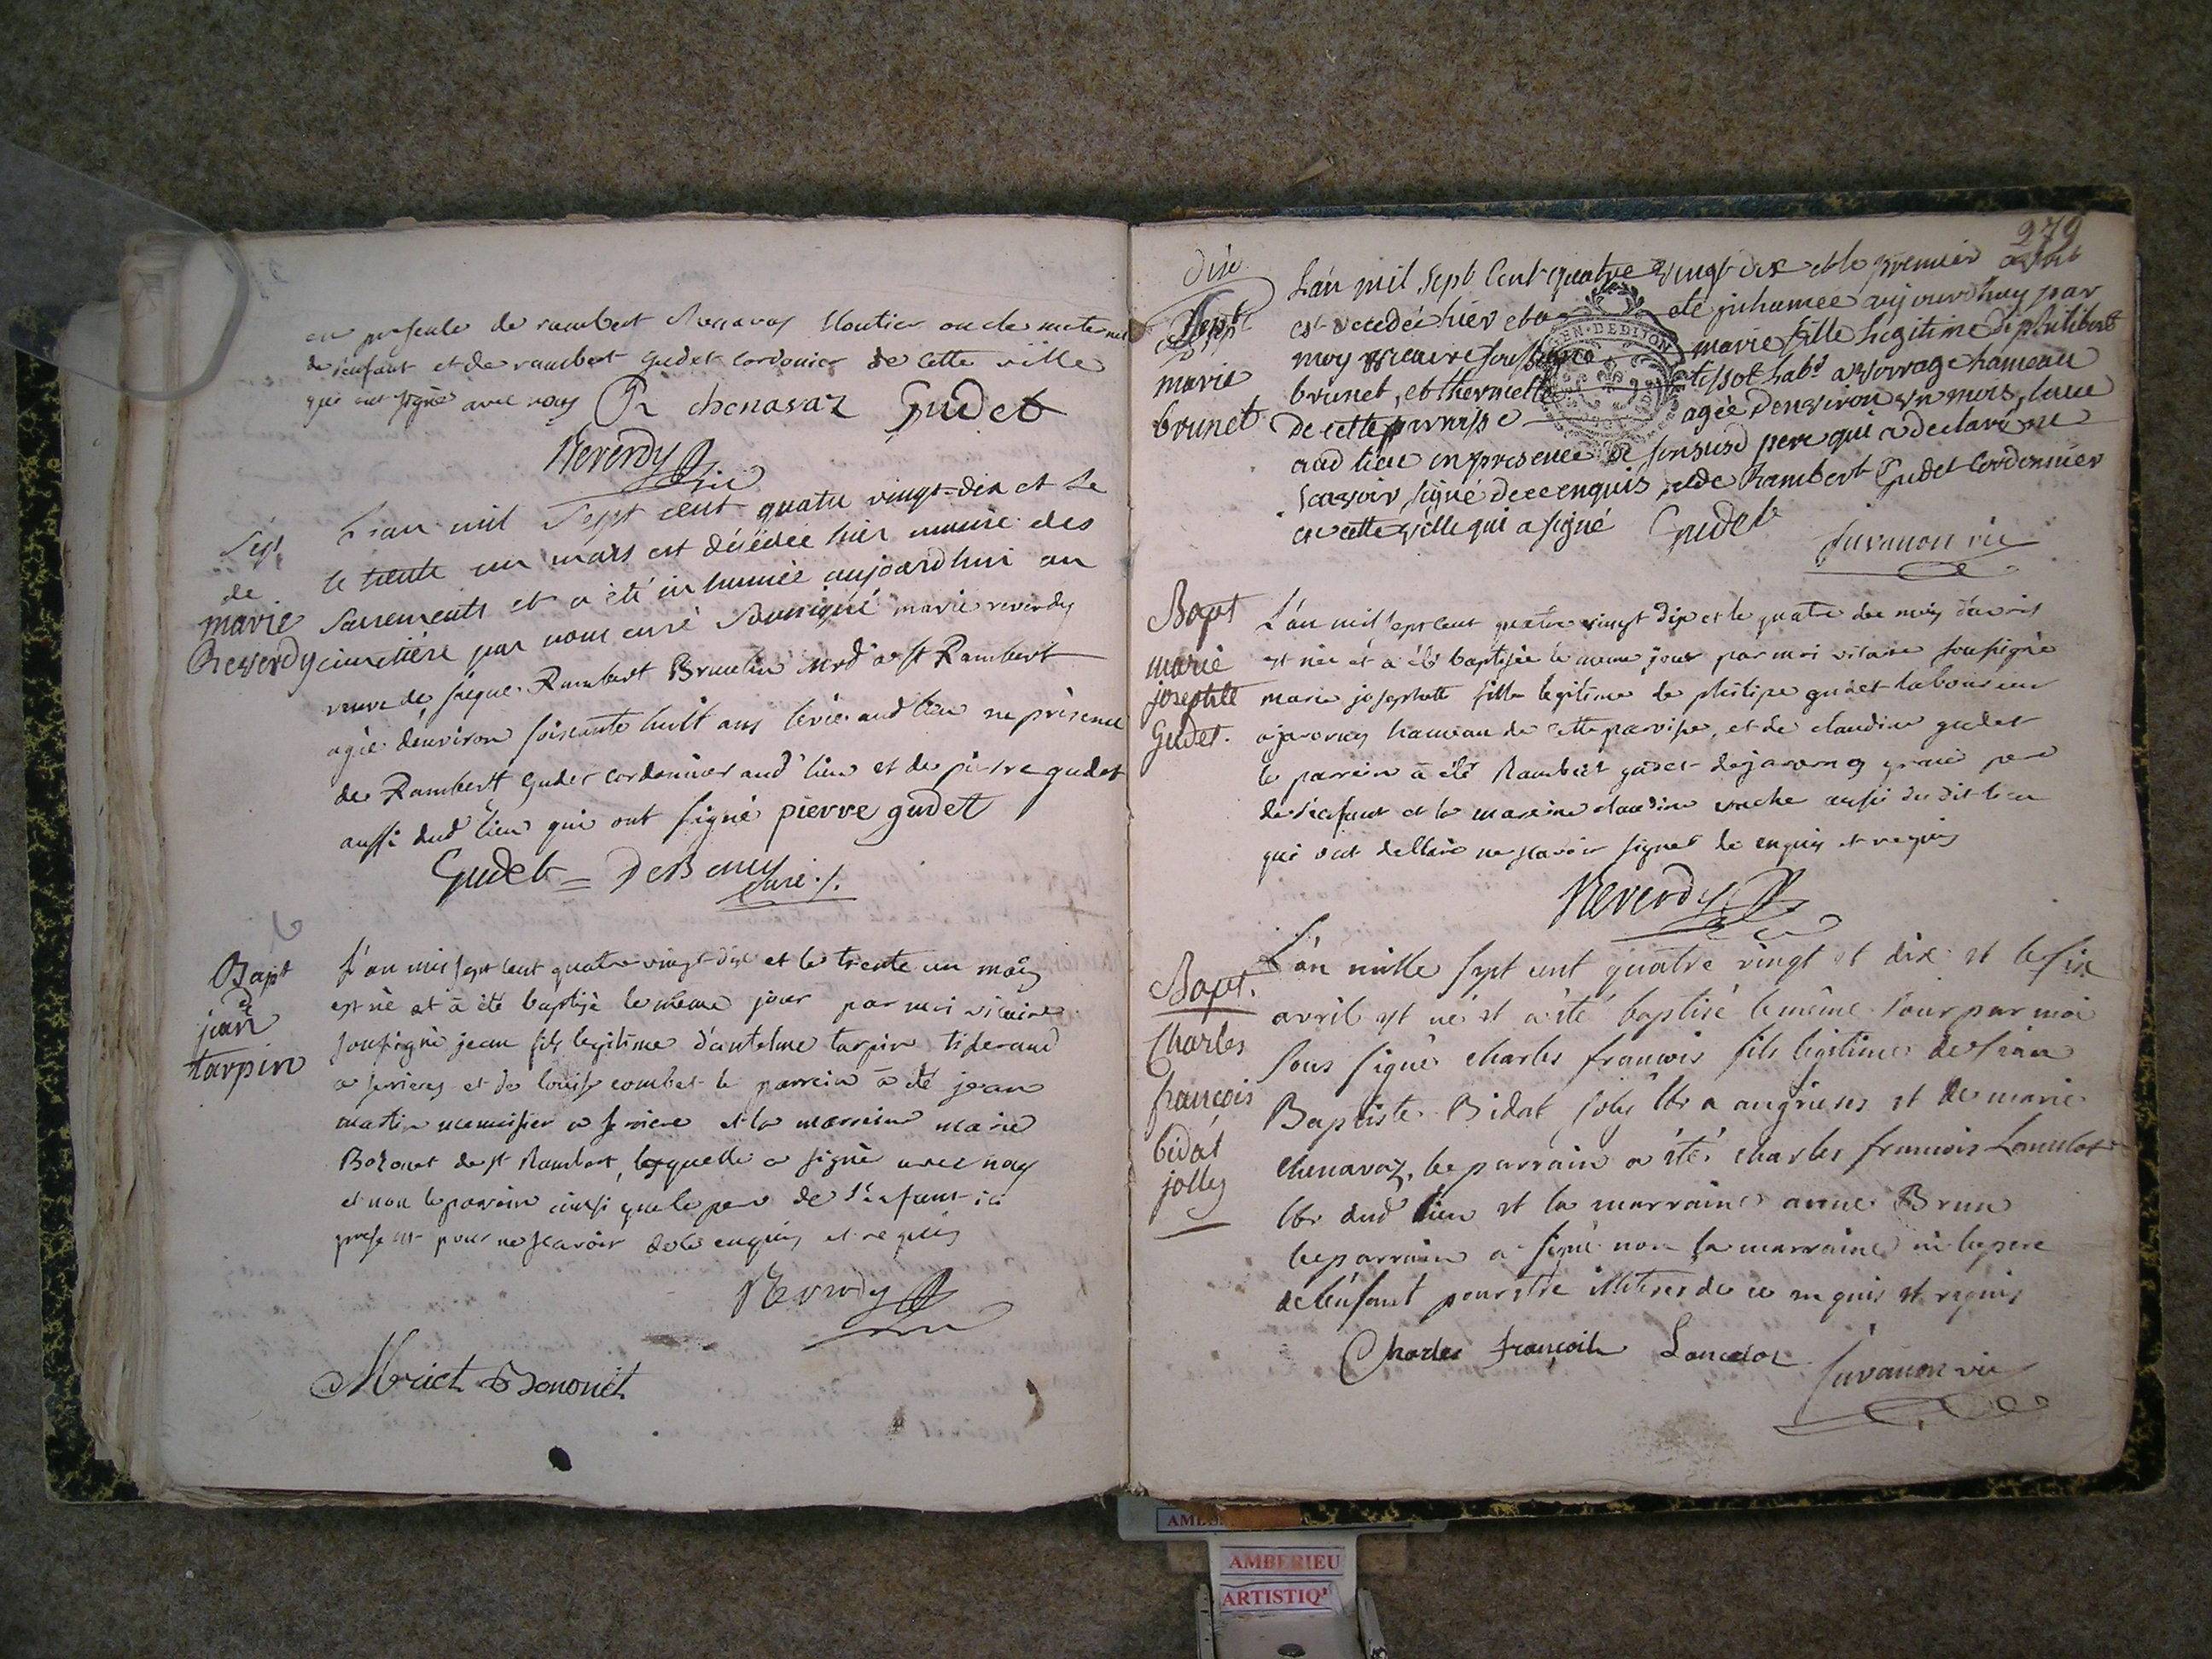 en presence de rambert Chenavaz cloutier oncle maternel
de l'enfant et de rambert Gudet Cordonier de cette ville
qui ont signé avec nous R chenavaz Gudet
Reverdy Vic
Sep.
de
marie
Reverdy
L'an mil Sept cent quatre vingt-dix et le
le trente un mars est décédée hier munie des
Sacrements et a été inhumée aujourdhui au
cimetière par nous curé Soussigné marie reverdy
veuve de jacque Rambert Brunelin mrd a st Rambert
agée d'environ soixante huit ans levée aud lieu en présence
de Rambert Gudet cordonnier aud lieu et de pierre gudet
aussi dud lieu qui ont signé pierre gudet
Gudet = DeBeney
curé ./.
Bapt
de
jean
tarpin
L'an mil sept cent quatre vingt dix et le trente un mars
est né et à été baptisé le même jour par moi vicaire
soussigné jean fils legitime d'antelme tarpin tiserand
a serrieres et de louise combet le parrein a été jean
martin menuisier a serriere et la marreine marie
Bozonet de st Rambert, laquelle a signé avec nous
et non le parrein ainsi que le pere de l'enfant ici
present pour ne scavoir de ce enquis et requis
Reverdy
Mariet Bononet
279
dix
Sept
marie
brunet
L'an mil Sept Cent quatre vingt dix et le premier avril
est decedée hier et a été inhumée aujourdhuy par
moy vicaire soussigné marie fille legitime de philibert
brunet, et thermette tissot habt a vorrage hameau
De cette parroisse agée d'environ un mois, levée
aud lieu en presence de son susd pere qui a declaré ne
scavoir signé de ce enquis et de Rambert Gudet Cordonnier
en cette ville qui a signé Gudet
Juvanon vic
Bapt
marie
josephte
Gudet.
L'an mil sept cent quatre vingt dix et le quatre du mois d'avril
est née et à été baptisée le meme jour par moi vicaire soussigné
marie josephette fille legitime de philipe gudet laboureur
a javorney hameau de cette paroisse, et de claudine gudet
le parrein à été Rambert gudet de javorney grand pere
de l'enfant et la mareine claudine vache aussi du dit lieu
qui ont déclaré ne scavoir signer de enquis et requis
Reverdy
Bapt.
Charles
françois
bidat
jolly
L'an mille sept cent quatre vingt et dix et le six
avril est né et a été baptisé le même Jour par moi
Sous signé charles francois fils légitime de Jean
Baptiste Bidat joly lbr a angrieres et de marie
chenavaz, le parrain a été charles francois Lancelot
lbr dud lieu et la marraine anne Brun
le parrain a signé non la marraine ni le pere
de l'enfant pour etre illiteres de ce enquis et requis
Charles François Lancelot
Juvanon vic
AMBERIEU
ARTISTIQ'